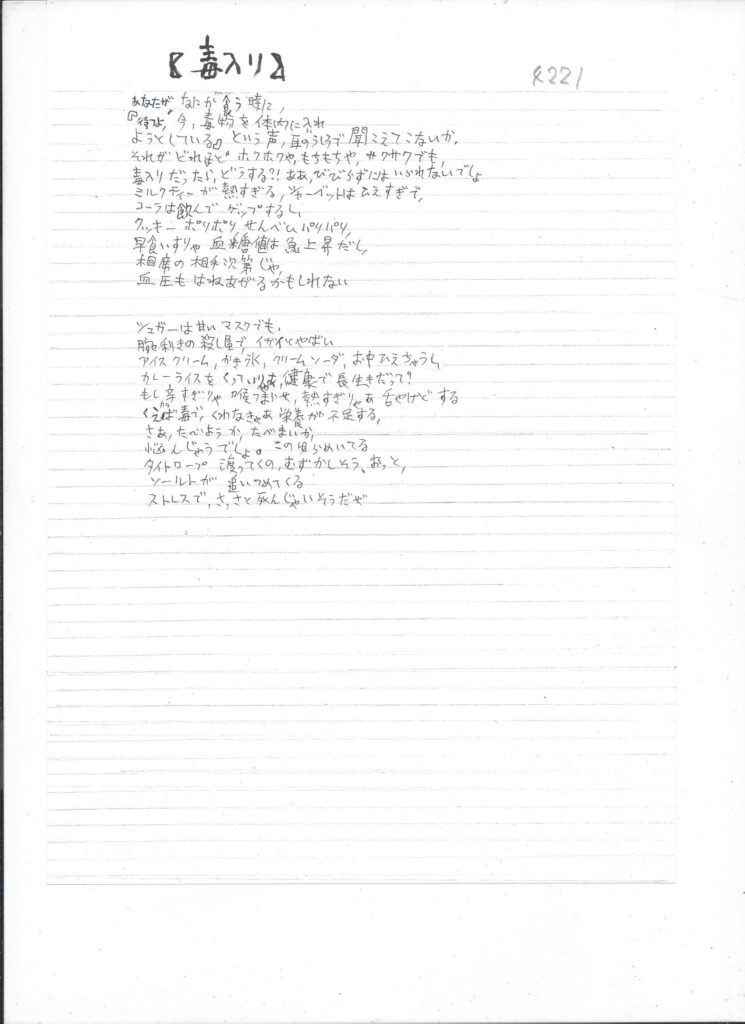 【毒入り】
4221
あなたが なにか 食う時に、
『待てよ、今、毒物を体内に入れ
ようとしている』という声、耳のうしろで聞こえてこないか。
それが どれほど ホクホクや、もちもちや、サクサクでも、
毒入りだったら、どうする?! ああ、びびらずには いられないでしょ
ミルクティーが 熱すぎる、シャーベットは ひえすぎで、
コーラは飲んで ゲップするし、
クッキー ポリポリ せんべい バリバリ、
早食いすりゃ 血糖値は 急上昇だし、
相席の 相手次第じゃ、
血圧も はねあがるかもしれない
シュガーは甘い マスクでも、
腕利きの 殺し屋で、イカれてやばい
アイスクリーム、かき氷、クリームソーダ、お中ひえちゃうし、
カレーライスを くっていりゃあ、健康で 長生きだって?
もし 辛すぎりゃ 喉つまらせ、熱すぎりゃあ 舌やけど する
くえば 毒で、くわなきゃあ 栄養が 不足する、
さあ、たべようか、たべまいか、
悩んじゃうでしょ。この頃 らめいてる
タイトロープ 渡ってくの、むずかしそう、おっと、
ソールトが 追いつめてくる
ストレスで、さっさと 死んじゃいそうだぜ